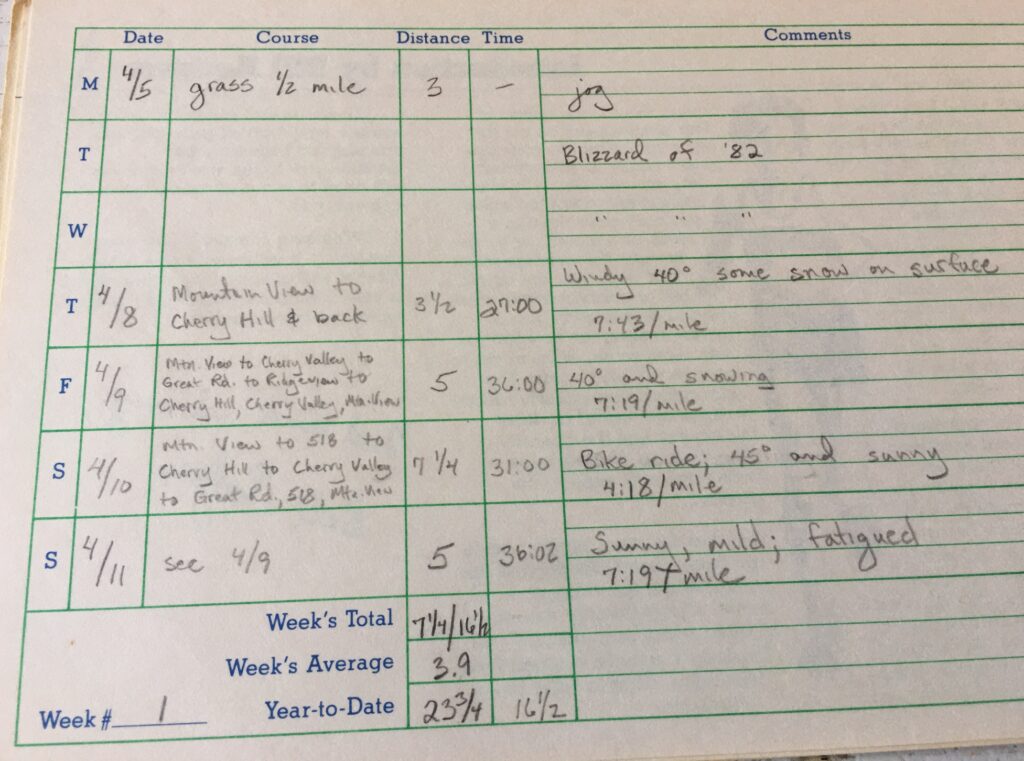 Date Course Distance Time Comments
M 4/5 grass 1/2 mile 3 – jog
T Blizzard of '82
W " " "
T 4/8 Mountain View to Cherry Hill & back 3 1/2 27:00 Windy 40° some snow on surface
7:43/mile
F 4/9 Mtn. View to Cherry Valley to
Great Rd. to Ridgeview to
Cherry Hill, Cherry Valley, Mtn. View 5 36:00 40° and snowing
7:19/mile
S 4/10 Mtn. View to 518 to
Cherry Hill to Cherry Valley
to Great Rd., 518, Mtn. View 7 1/4 31:00 Bike ride; 45° and sunny
4:18/mile
S 4/11 see 4/9 5 36:02 Sunny, mild; fatigued
7:19+/mile
Week's Total 7 1/4/16 1/2
Week's Average 3.9
Week # 1 Year-to-Date 23 3/4 16 1/2